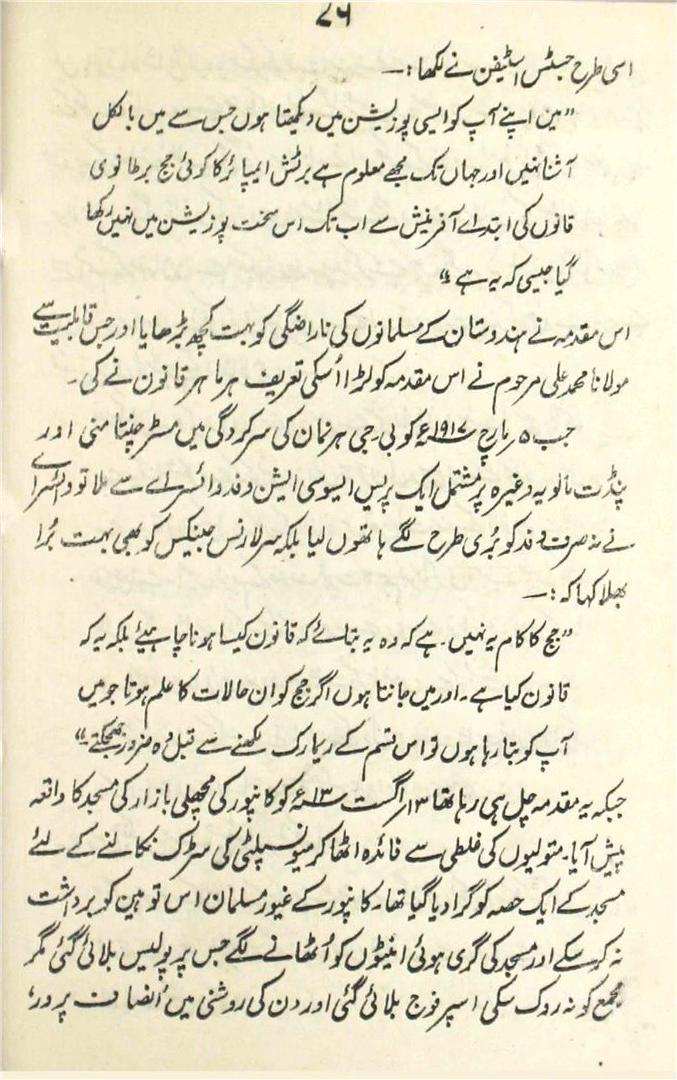 ۷۶
اسی طرح جسٹس اسٹیفن نے لکھا:—
”میں اپنے آپ کو ایسی پوزیشن میں دیکھتا ہوں جس سے میں بالکل
آشنا نہیں اور جہاں تک مجھے معلوم ہے برٹش ایمپائر کا کوئی جج برطانوی
قانون کی ابتدائے آفرینش سے اب تک اس سخت پوزیشن میں نہیں رکھا
گیا جیسی کہ یہ ہے“
اس مقدمہ نے ہندوستان کے مسلمانوں کی ناراضگی کو بہت کچھ بڑھایا اور جس قابلیت سے
مولانا محمد علی مرحوم نے اس مقدمہ کو لڑا اُسکی تعریف ہر ماہر قانون نے کی۔
جب ۵ مارچ ۱۹۱۷ء کو بی۔ جی ہرنمان کی سرکردگی میں مسٹر چنتا منی اور
پنڈت مالویہ وغیرہ پر مشتمل ایک پریس ایسوسی ایشن وفد وائسرائے سے ملا تو وائسرائے
نے نہ صرف وفد کو بُری طرح لگے ہاتھوں لیا بلکہ سر لارنس جینکس کو بھی بہت بُرا
بھلا کہا کہ:—
”جج کا کام یہ نہیں۔ ہے کہ وہ یہ بتائے کہ قانون کیسا ہونا چاہیئے بلکہ یہ کہ
قانون کیا ہے۔ اور میں جانتا ہوں اگر جج کو ان حالات کا علم ہوتا جو میں
آپ کو بتا رہا ہوں تو اس قسم کے ریمارک لکھنے سے قبل وہ ضرور جھجکتے۔“
جبکہ یہ مقدمہ چل ہی رہا تھا ۳؍ اگست ۱۳ء کو کانپور کی مچھلی بازار کی مسجد کا واقعہ
پیش آیا۔ متولیوں کی غلطی سے فائدہ اٹھا کر میونسپلٹی کی سڑک نکالنے کے لئے
مسجد کے ایک حصہ کو گرا دیا گیا تھا۔ کانپور کے غیور مسلمان اس توہین کو برداشت
نہ کرسکے اور مسجد کی گری ہوئی اینٹوں کو اُٹھانے لگے جس پر پولیس بلائی گئی مگر
مجمع کو نہ روک سکی اسپر فوج بلائی گئی اور دن کی روشنی میں ’انصاف پرور‘